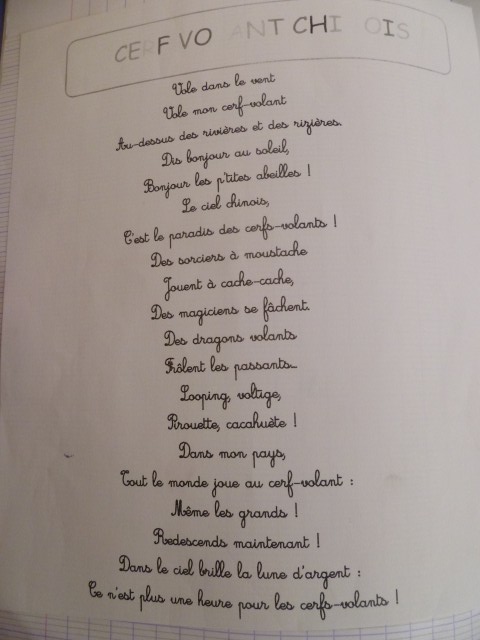 CERF VOLANT CHINOIS
Vole dans le vent
Vole mon cerf-volant
Au-dessus des rivières et des rizières.
Dis bonjour au soleil,
Bonjour les p'tites abeilles !
Le ciel chinois,
C'est le paradis des cerfs-volants !
Des sorciers à moustache
Jouent à cache-cache,
Des magiciens se fâchent.
Des dragons volants
Frôlent les passants...
Looping, voltige,
Pirouette, cacahuète !
Dans mon pays,
Tout le monde joue au cerf-volant :
Même les grands !
Redescends maintenant !
Dans le ciel brille la lune d'argent :
Ce n'est plus une heure pour les cerfs-volants !